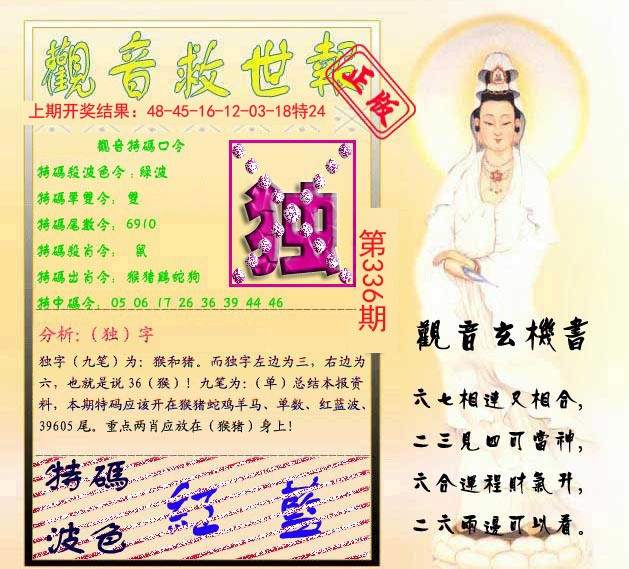 觀音救世報
正版
上期开奖结果：48-45-16-12-03-18特24
觀音特碼口令
特碼殺波色令：綠波
特碼單雙令： 雙
特碼尾數令： 6910
特碼殺肖令： 鼠
特碼出肖令： 猴猪鷄蛇狗
特中碼令： 05 06 17 26 36 39 44 46
独
第336期
分析：（独）字
独字（九笔）为：猴和猪。而独字左边为三，右边为
六，也就是说 36（猴）！九笔为：（单）总结本报资
料，本期特码应该开在猴猪蛇鸡羊马、单数、红蓝波、
39605 尾。重点两肖应放在（猴猪）身上！
特碼
波色
紅 藍
觀音玄機書
六七相連又相合，
二三見四可當神，
六合運程財氣升，
二六兩邊可以看。